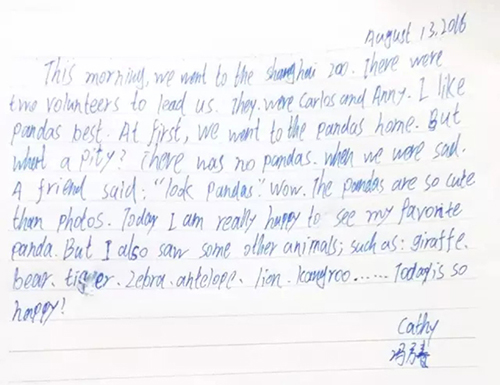 August 13, 2016
This morning, we went to the shanghai zoo. There were
two volunteers to lead us. They were Carlos and Anny. I like
pandas best. At first, we went to the pandas home. But
what a pity? There was no pandas. when we were sad.
A friend said: "look pandas". Wow. The pandas are so cute
than photos. Today I am really happy to see my favorite
panda. But I also saw some other animals; such as: giraffe.
bear. tigger. zebra. antelope. lion. kangroo...... Today is so
happy!
Cathy
冯